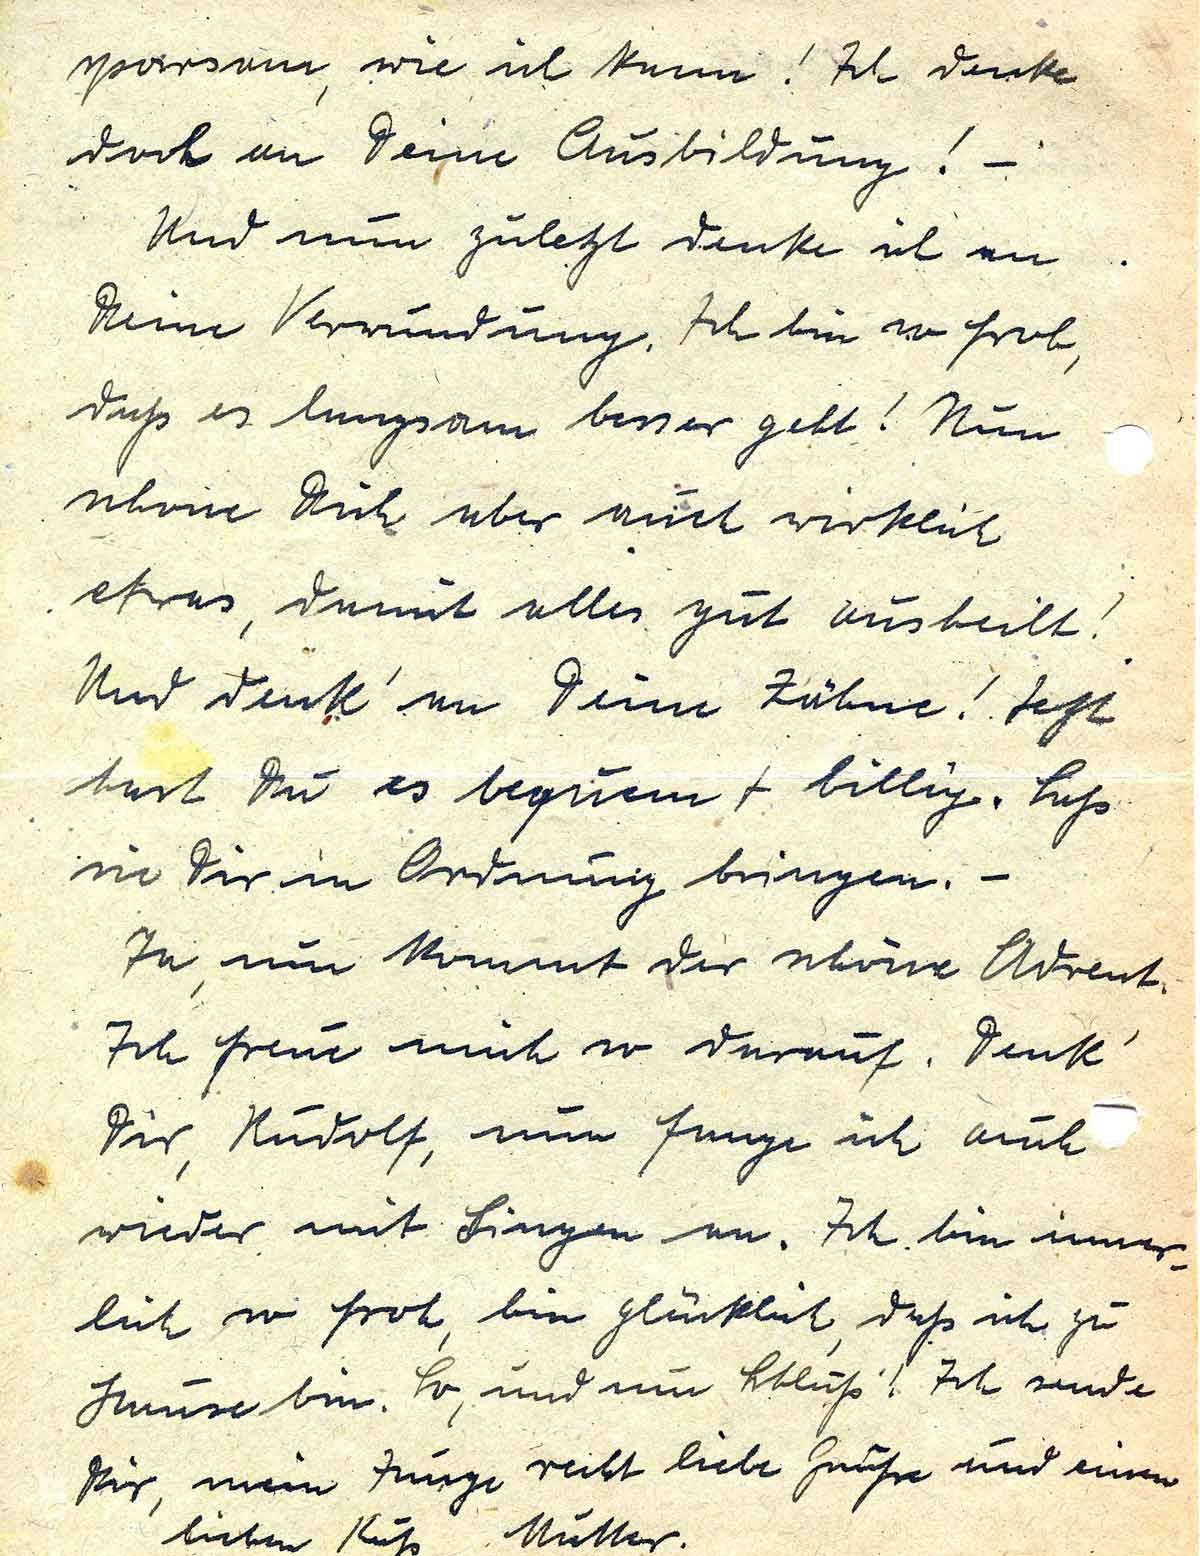 sparsam, wie ich kann! Ich denke
doch an Deine Ausbildung! –
Und nun zuletzt denke ich an
Deine Verwundung. Ich bin so froh,
daß es langsam besser geht! Nun
schone Dich aber auch wirklich
etwas, damit alles gut ausheilt!
Und denk' an Deine Zähne! Jetzt
hast Du es bequem + billig. Laß
sie Dir in Ordnung bringen. –
Ja, nun kommt der schöne Advent.
Ich freue mich so darauf. Denk'
Dir, Rudolf, nun fange ich auch
wieder mit Singen an. Ich bin inner-
lich so froh, bin glücklich, daß ich zu
Hause bin. So, und nun Schluß! Ich sende
Dir, mein Junge recht liebe Grüße und einen
lieben Kuß Mutter.